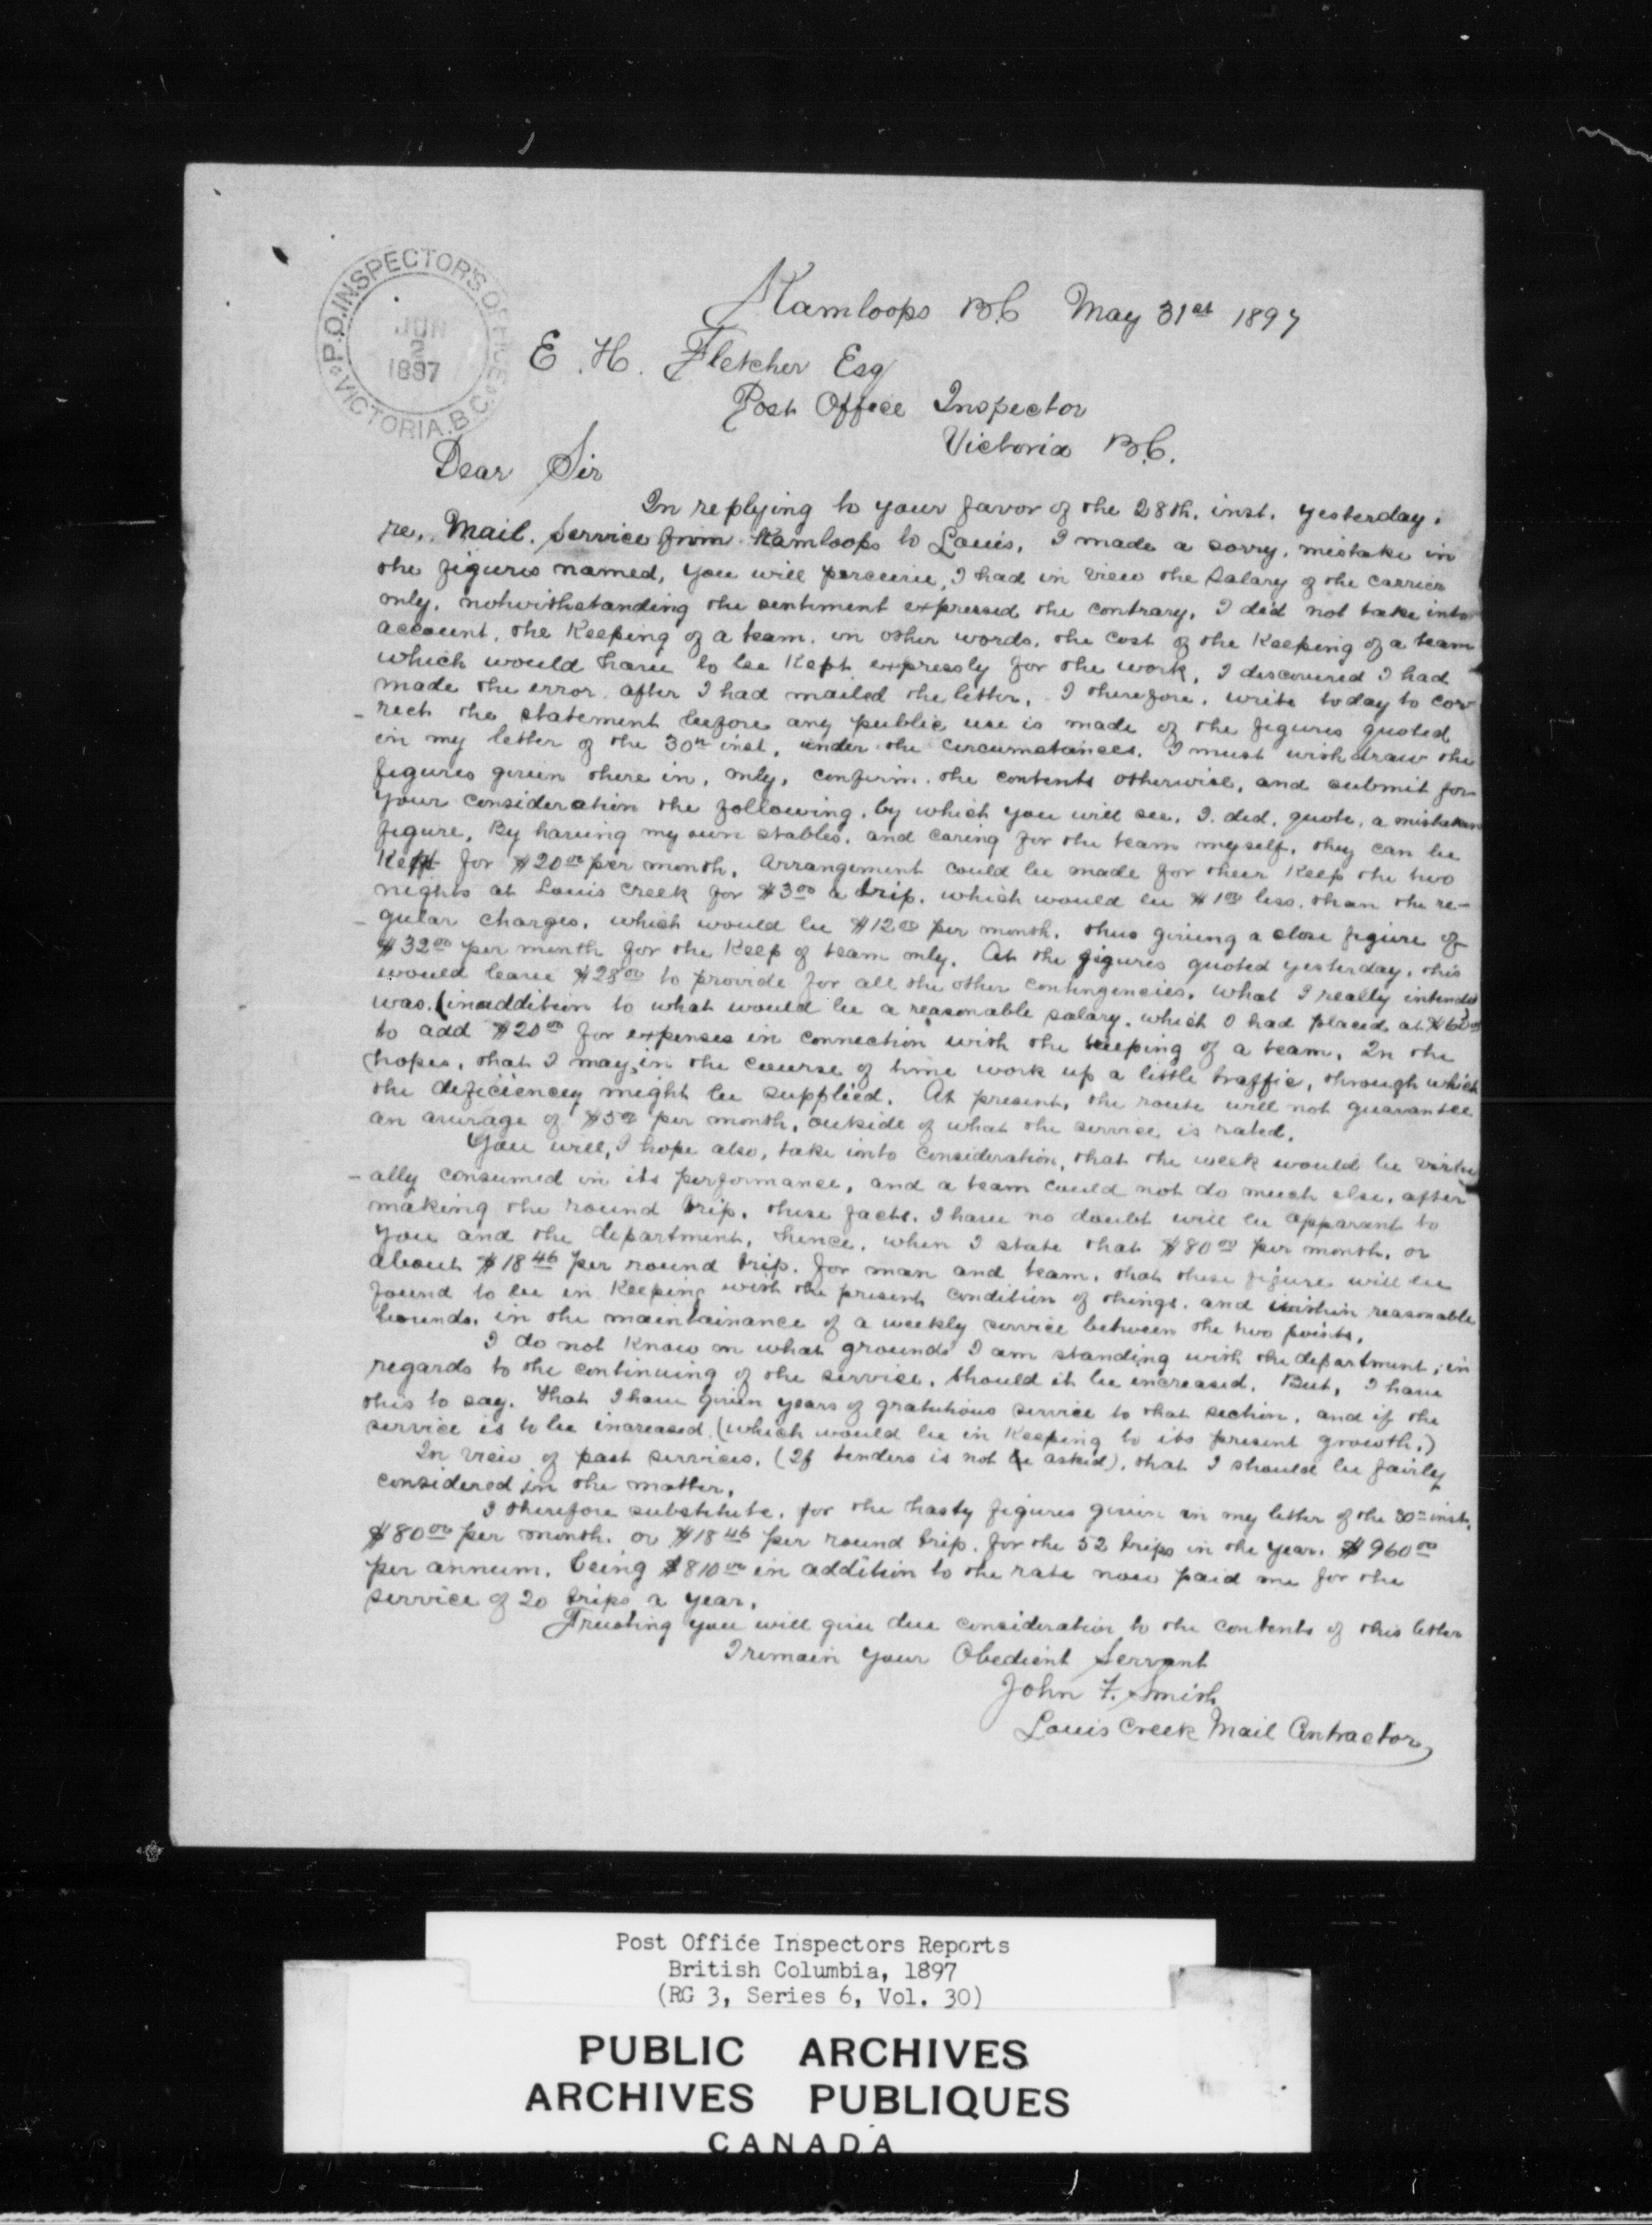 P.O. INSPECTOR'S OFFICE
JUN
2
1897
VICTORIA. B.C.
Kamloops B.C May 31st 1897
E. H. Fletcher Esq
Post Office Inspector
Victoria B.C.
Dear Sir
In replying to your favor of the 28th. inst. yesterday.
re, Mail. Service from Kamloops to Louis, I made a sorry, mistake in
the figures named, you will perceive, I had in view the Salary of the carrier
only, notwithstanding the sentiment expressed the contrary, I did not take into
account, the Keeping of a team, in other words, the cost of the Keeping of a team
which would have to be Kept expressly for the work, I discovered I had
made the error, after I had mailed the letter, I therefore, write today to cor
-rect the statement before any public use is made of the figures quoted
in my letter of the 30th inst, under the circumstances. I must withdraw the
figures given there in, only, confirm. the contents otherwise, and submit for
your consideration the following, by which you will see, I. did, quote, a mistaken
figure, By having my own stables, and caring for the team myself, they can be
Kept for $20.00 per month, arrangement could be made for their Keep the two
nights at Louis Creek for $3.00 a trip, which would be $1.00 less, than the re-
-gular charges, which would be $12.00 per month, thus giving a close figure of
$32.00 per month for the Keep of team only. At the figures quoted yesterday, this
would leave $28.00 to provide for all the other contingencies, what I really intended
was, (in addition to what would be a reasonable salary, which I had placed at $60.00
to add $20.00 for expenses in connection with the keeping of a team, In the
hopes, that I may, in the course of time work up a little traffic, through which
the deficiency might be supplied. At present, the route will not guarantee
an average of $5.00 per month, outside of what the service is rated.
You will, I hope also, take into consideration, that the week would be virtu
-ally consumed in its performance, and a team could not do much else, after
making the round trip, these facts, I have no doubt will be apparant to
you and the department, hence, when I state that $80.00 per month, or
about $18.46 per round trip, for man and team, that these figures will be
found to be in Keeping with the present condition of things, and within reasonable
bounds, in the maintainance of a weekly service between the two points.
I do not Know on what grounds I am standing with the department, in
regards to the continuing of the service, should it be increased. But, I have
this to say, that I have given years of gratutious service to that section, and if the
service is to be increased (which would be in Keeping to its present growth.)
In view of past services, (If tenders is not be asked), that I should be fairly
considered in the matter.
I therefore substitute, for the hasty figures given in my letter of the 30th inst,
$80.00 per month, or $18.46 per round trip, for the 52 trips in the year, $960.00
per annum, being $810.00 in addition to the rate now paid me for the
service of 20 trips a year.
Trusting you will give due consideration to the contents of this letter
I remain your Obedient Servant
John F. Smith
Louis Creek Mail Contractor
Post Office Inspectors Reports
British Columbia, 1897
(RG 3, Series 6, Vol. 30)
PUBLIC ARCHIVES
ARCHIVES PUBLIQUES
CANADA